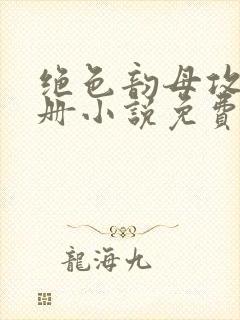 绝色韵母攻
册小说免費
龍海九